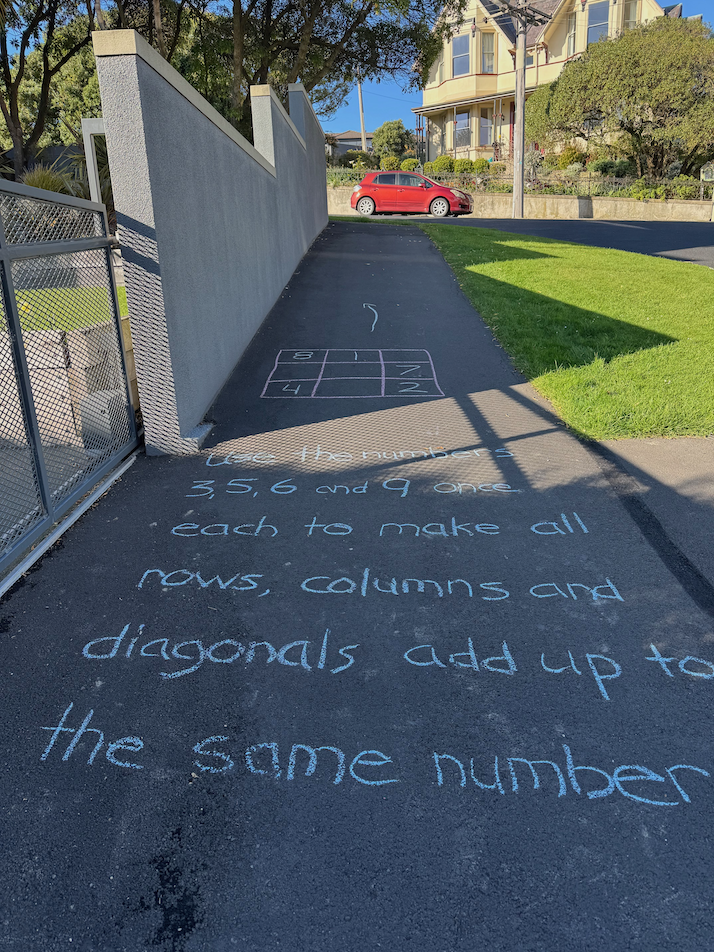 8 1
7
4 2
Use the numbers
3, 5, 6 and 9 once
each to make all
rows, columns and
diagonals add up to
the same number